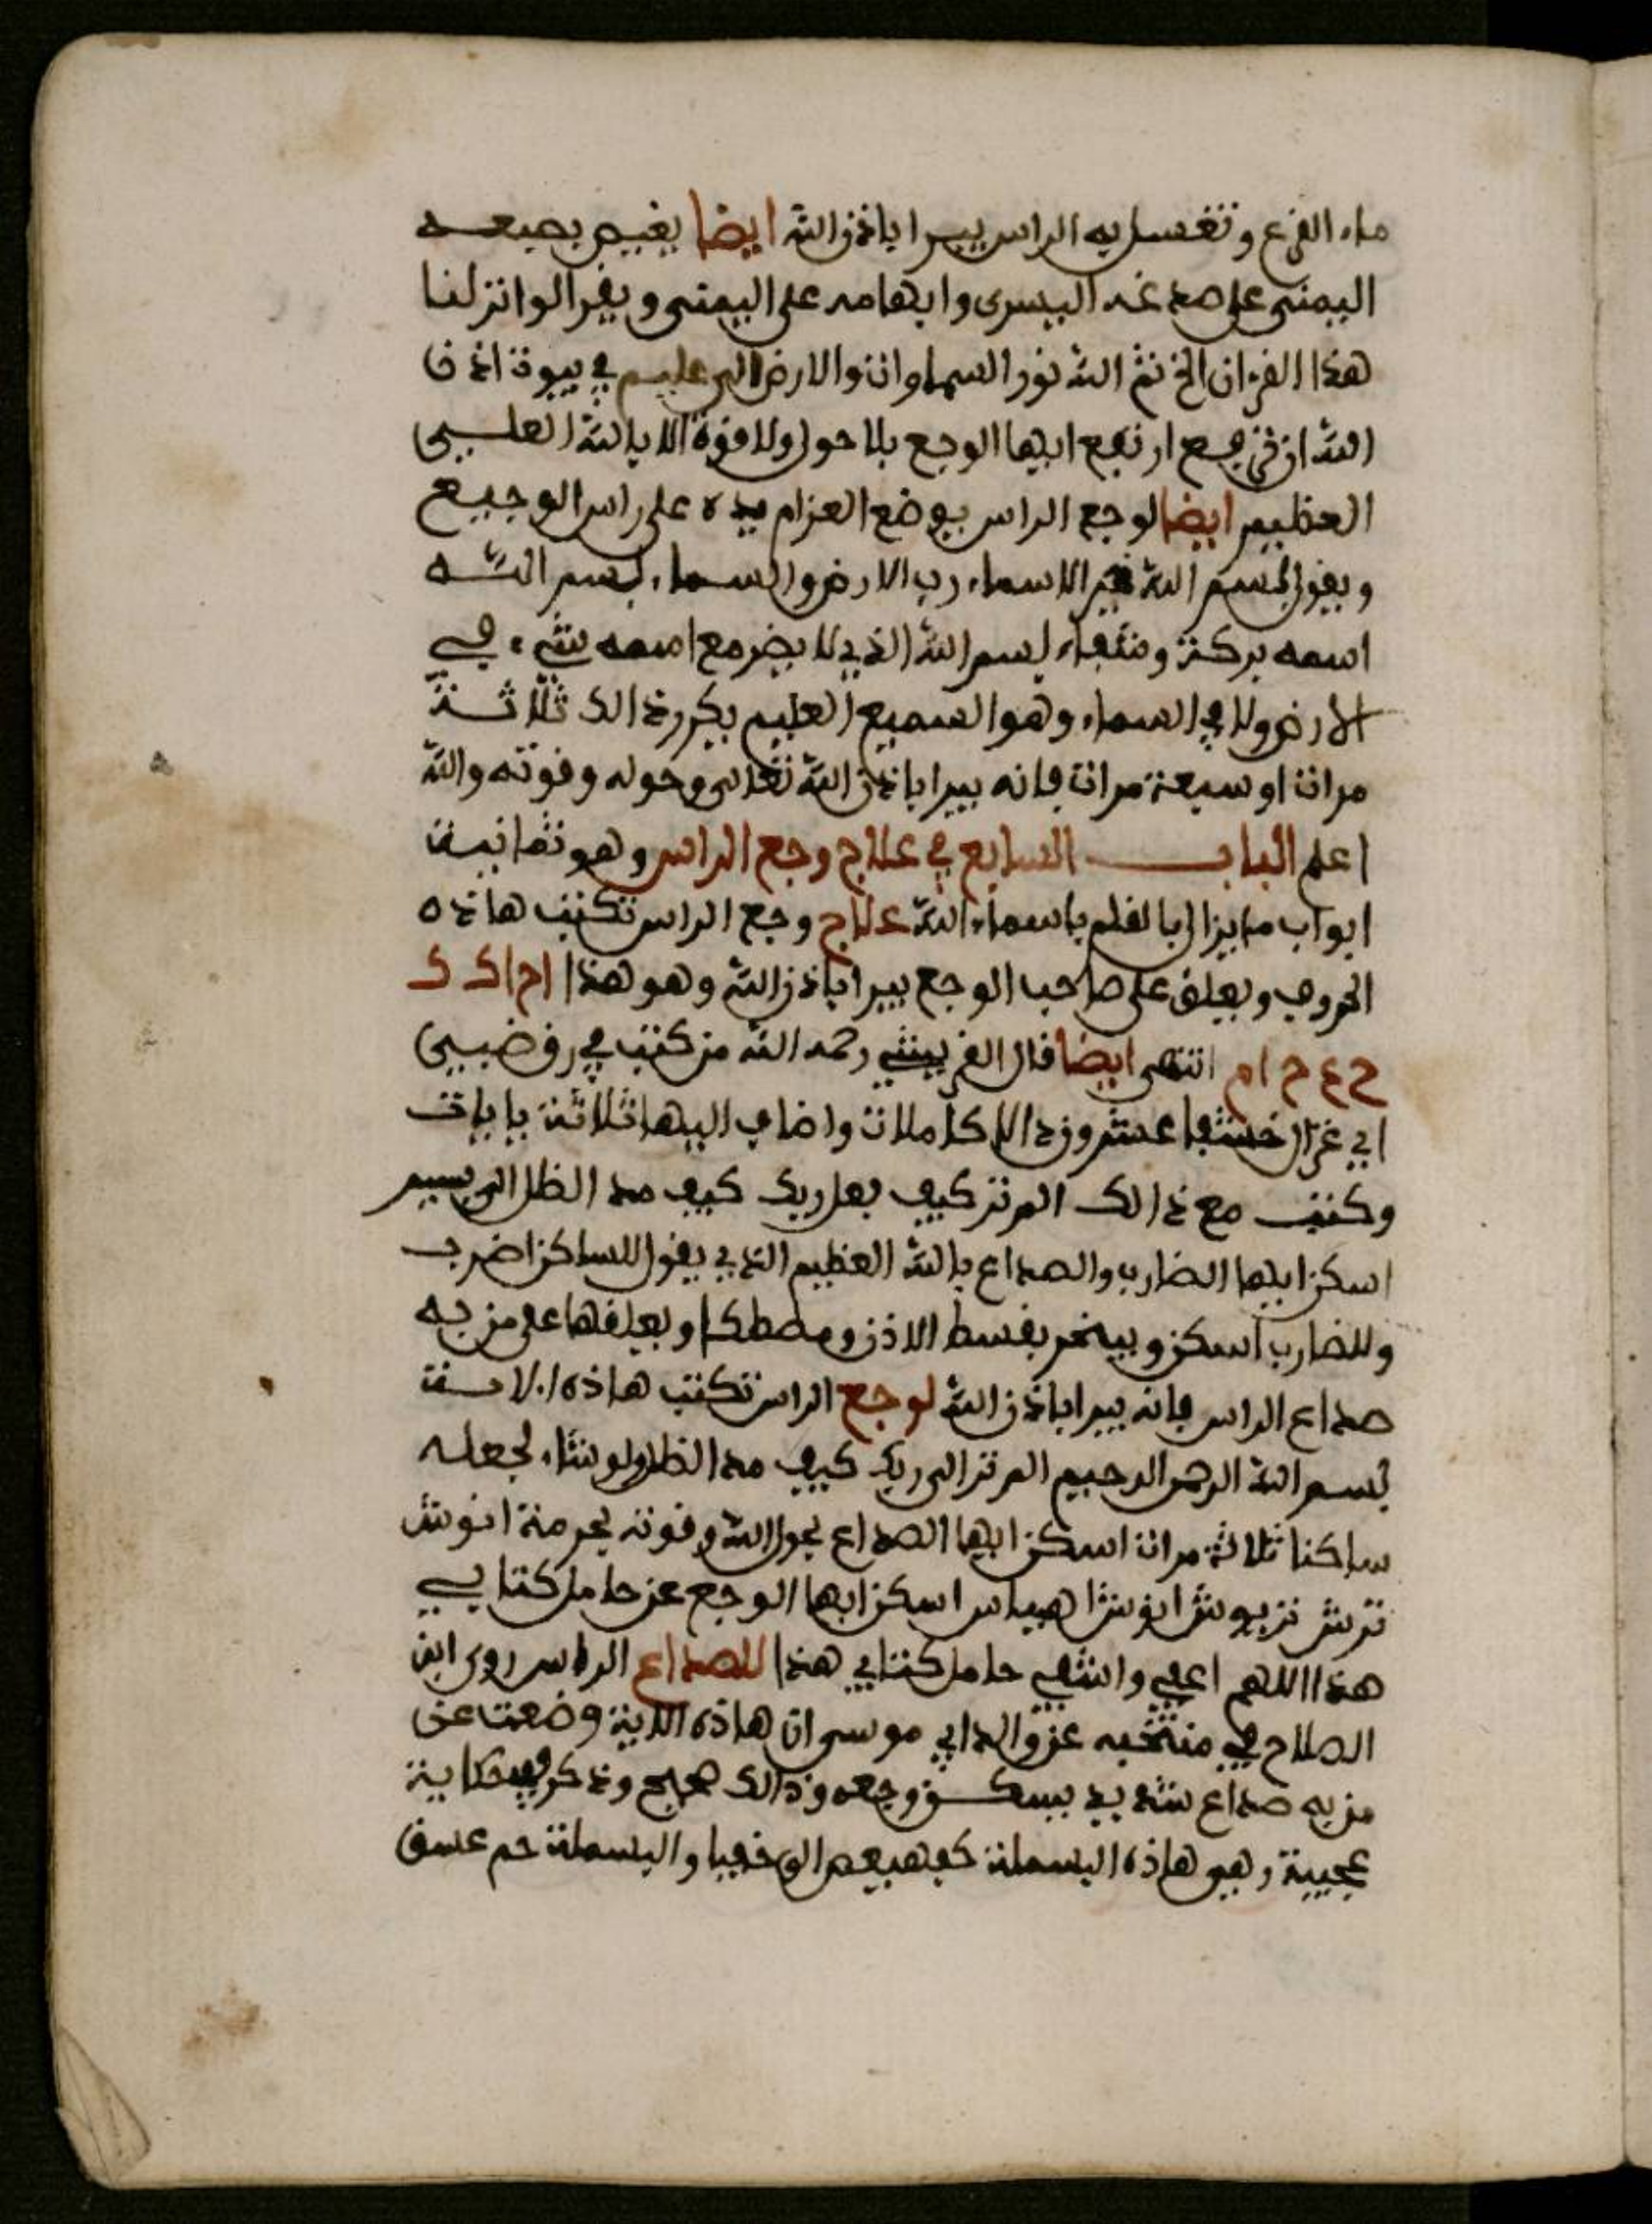 ماء القرع وتغسل به الراس يبرا باذن الله ايضا يقبض بصبعه
اليمنى على صدغه اليسرى وابهامه على اليمنى ويقرا لو انزلنا
هذا القرءان الخ ثم الله نور السماوات والارض الى عليم في بيوت اذن
الله ان ترفع ارتفع ايها الوجع بلا حول ولا قوة الا بالله العلي
العظيم ايضا لوجع الراس يوضع العزام يده على راس الوجيع
ويقول بسم الله خير الاسماء رب الارض والسماء بسم الله
اسمه بركة وشفاء بسم الله الذي لا يضر مع اسمه شيء في
الارض ولا في السماء وهو السميع العليم يكرر ذالك ثلاثة
مرات او سبعة مرات فانه يبرا باذن الله تعالى وحوله وقوته والله
اعلم الباب السابع في علاج وجع الراس وهو ثمانية
ابواب ما يزال بالقلم باسماء الله علاج وجع الراس تكتب هاذه
الحروف ويعلق على صاحب الوجع يبرا باذن الله وهو هذا ا ح ا ك ك
ح ع ح ا م انتهى ايضا قال القريشي رحمه الله من كتب في رق ضبي
اي غزال عشر وذالا كاملات واضاف اليها ثلاثة باءات
وكتب مع ذالك الم تر كيف فعل ربك كيف مد الظل الى يسير
اسكن ايها الضارب والصداع بالله العظيم الذي يقول للساكن اضرب
وللضارب اسكن ويبخر بقسط الاذن ومصطكا ويعلقها على من به
صداع الراس فانه يبرا باذن الله لوجع الراس تكتب هاذه الاية
بسم الله الرحمن الرحيم الم تر الى ربك كيف مد الظل ولو شاء لجعله
ساكنا ثلاثة مرات اسكن ايها الصداع بحول الله وقوته بحرمة انوش
ترش نزبوش ابوش اهياس اسكن ايها الوجع عن حامل كتابي
هذا اللهم اعفي واشفي حامل كتابي هذا للصداع الراس روى ابن
الصلاح في منتخبه عن والد ابي موسى ان هاذه الاية وضعت على
من به صداع شديد يسكن وجعه وذالك صحيح وذكر في حكاية
عجيبة وهي هاذه البسملة كهيعص الى خفيا والبسملة حم عسق